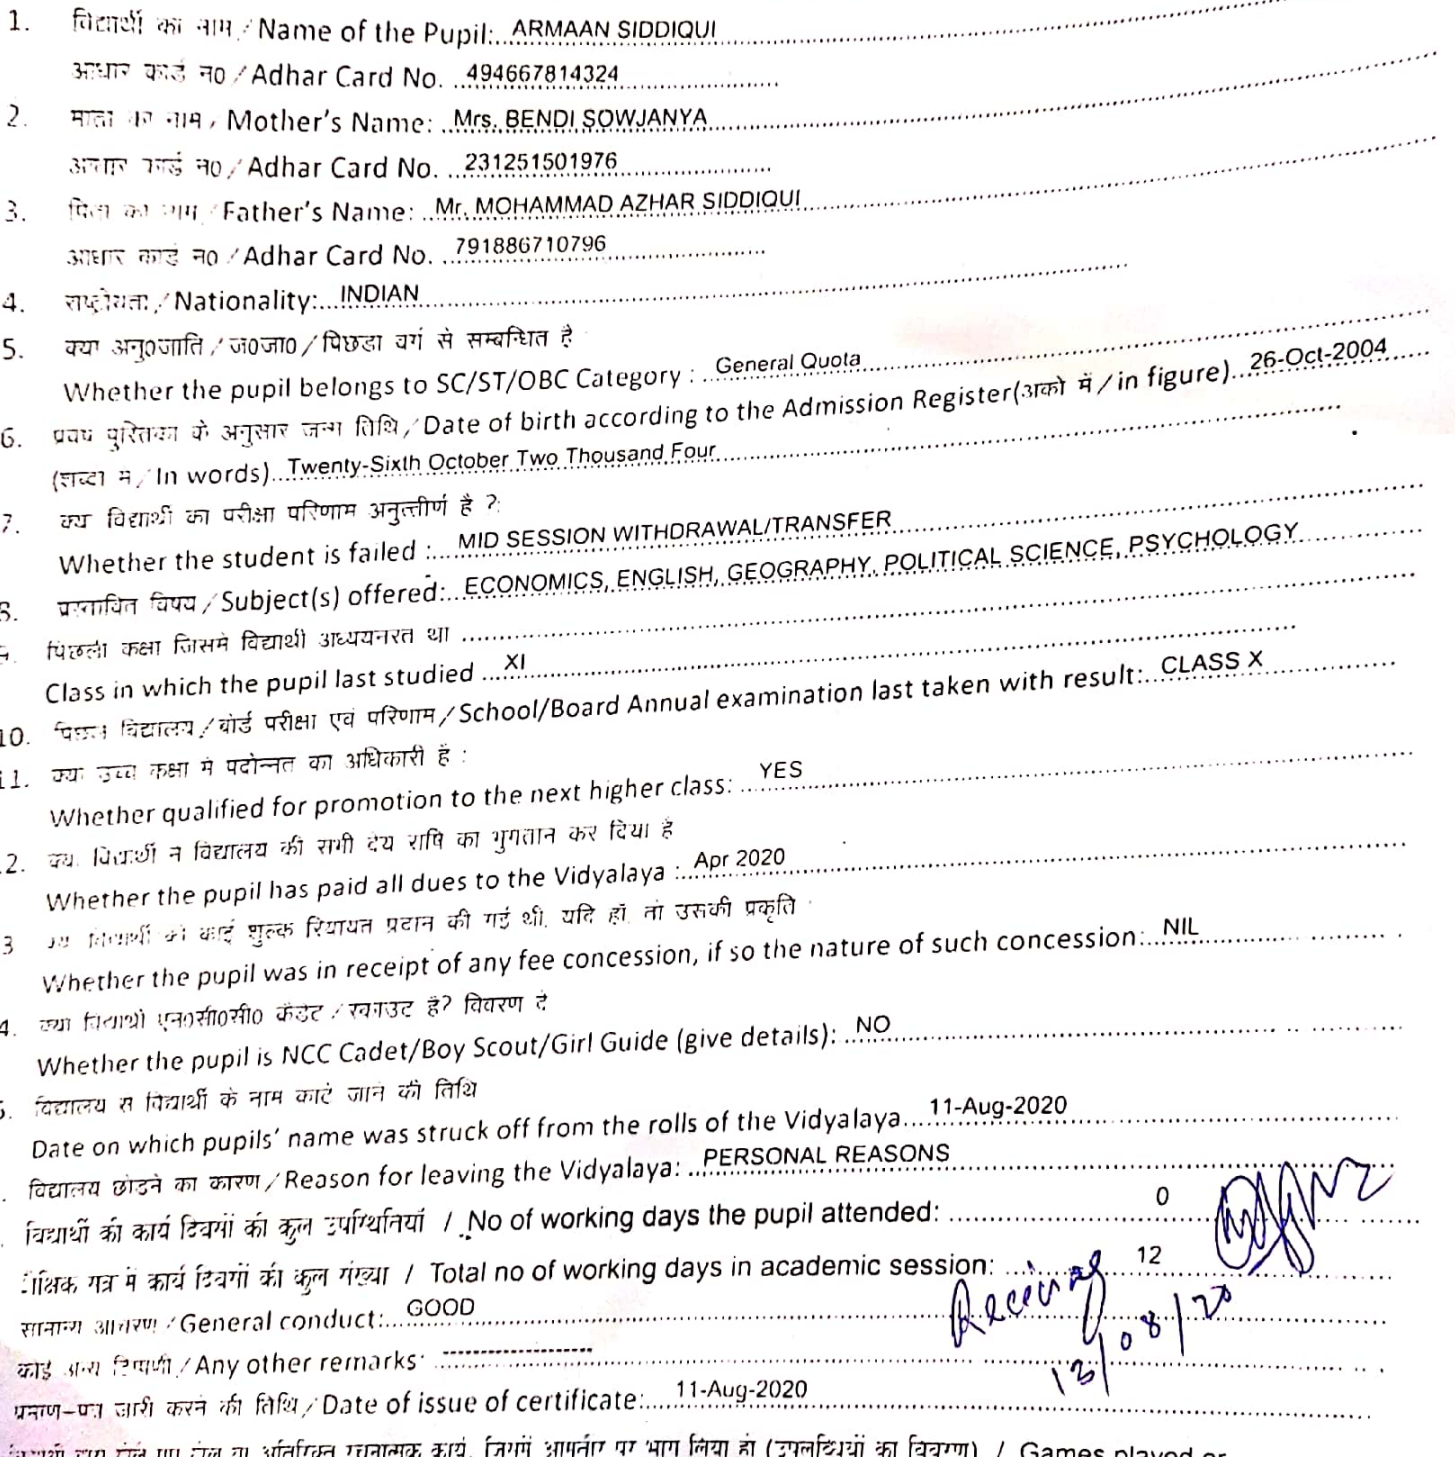 1. विद्यार्थी का नाम / Name of the Pupil: ARMAAN SIDDIQUI
आधार कार्ड न0 / Adhar Card No. 494667814324
2. माता का नाम / Mother's Name: Mrs. BENDI SOWJANYA
आधार कार्ड न0 / Adhar Card No. 231251501976
3. पिता का नाम / Father's Name: Mr. MOHAMMAD AZHAR SIDDIQUI
आधार कार्ड न0 / Adhar Card No. 791886710796
4. राष्ट्रीयता / Nationality: INDIAN
5. क्या अनु0जाति / ज0जा0 / पिछडा वर्ग से सम्बन्धित है
Whether the pupil belongs to SC/ST/OBC Category : General Quota
6. पुस्तिका के अनुसार जन्म तिथि / Date of birth according to the Admission Register (अंको में / in figure) 26-Oct-2004
(शब्दो में / In words) Twenty-Sixth October Two Thousand Four
7. क्या विद्यार्थी का परीक्षा परिणाम अनुत्तीर्ण है ?:
Whether the student is failed : MID SESSION WITHDRAWAL/TRANSFER
8. प्रस्तावित विषय / Subject(s) offered: ECONOMICS, ENGLISH, GEOGRAPHY, POLITICAL SCIENCE, PSYCHOLOGY
पिछली कक्षा जिसमे विद्यार्थी अध्ययनरत था
Class in which the pupil last studied XI
10. विद्यालय / बोर्ड परीक्षा एवं परिणाम / School/Board Annual examination last taken with result: CLASS X
11. क्या उच्च कक्षा मे पदोन्नत का अधिकारी है :
Whether qualified for promotion to the next higher class: YES
2. क्या विद्यार्थी ने विद्यालय की सभी देय राषि का भुगतान कर दिया है
Whether the pupil has paid all dues to the Vidyalaya : Apr 2020
3 विद्यार्थी को कोई शुल्क रियायत प्रदान की गई थी, यदि हॉ, तो उसकी प्रकृति
Whether the pupil was in receipt of any fee concession, if so the nature of such concession: NIL
4. क्या विद्यार्थी एन0सी0सी0 कैडेट / स्काउट है? विवरण दे
Whether the pupil is NCC Cadet/Boy Scout/Girl Guide (give details): NO
5. विद्यालय से विद्यार्थी के नाम काटे जाने की तिथि
Date on which pupils' name was struck off from the rolls of the Vidyalaya 11-Aug-2020
. विद्यालय छोडने का कारण / Reason for leaving the Vidyalaya: PERSONAL REASONS
विद्यार्थी की कार्य दिवसों की कुल उपस्थितियाँ / No of working days the pupil attended: 0
सत्र में कार्य दिवसों की कुल संख्या / Total no of working days in academic session: 12
सामान्य आचरण / General conduct: GOOD
Receiving
13/08/20
कोई अन्य टिप्पणी / Any other remarks
प्रमाण-पत्र जारी करने की तिथि / Date of issue of certificate: 11-Aug-2020
खेल या अतिरिक्त रचनात्मक कार्य, जिसमें आमतौर पर भाग लिया हो (उपलब्धियों का विवरण) / Games played or